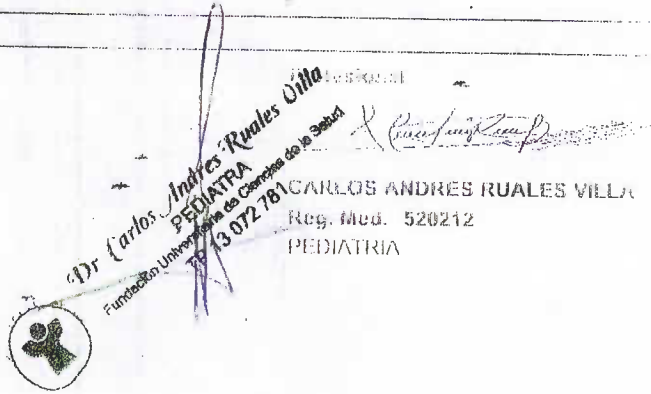 Profesional
Dr Carlos Andres Ruales Villa
PEDIATRA
Fundación Universitaria de Ciencias de la Salud
13 072 781
CARLOS ANDRES RUALES VILLA
Reg. Med. 520212
PEDIATRIA